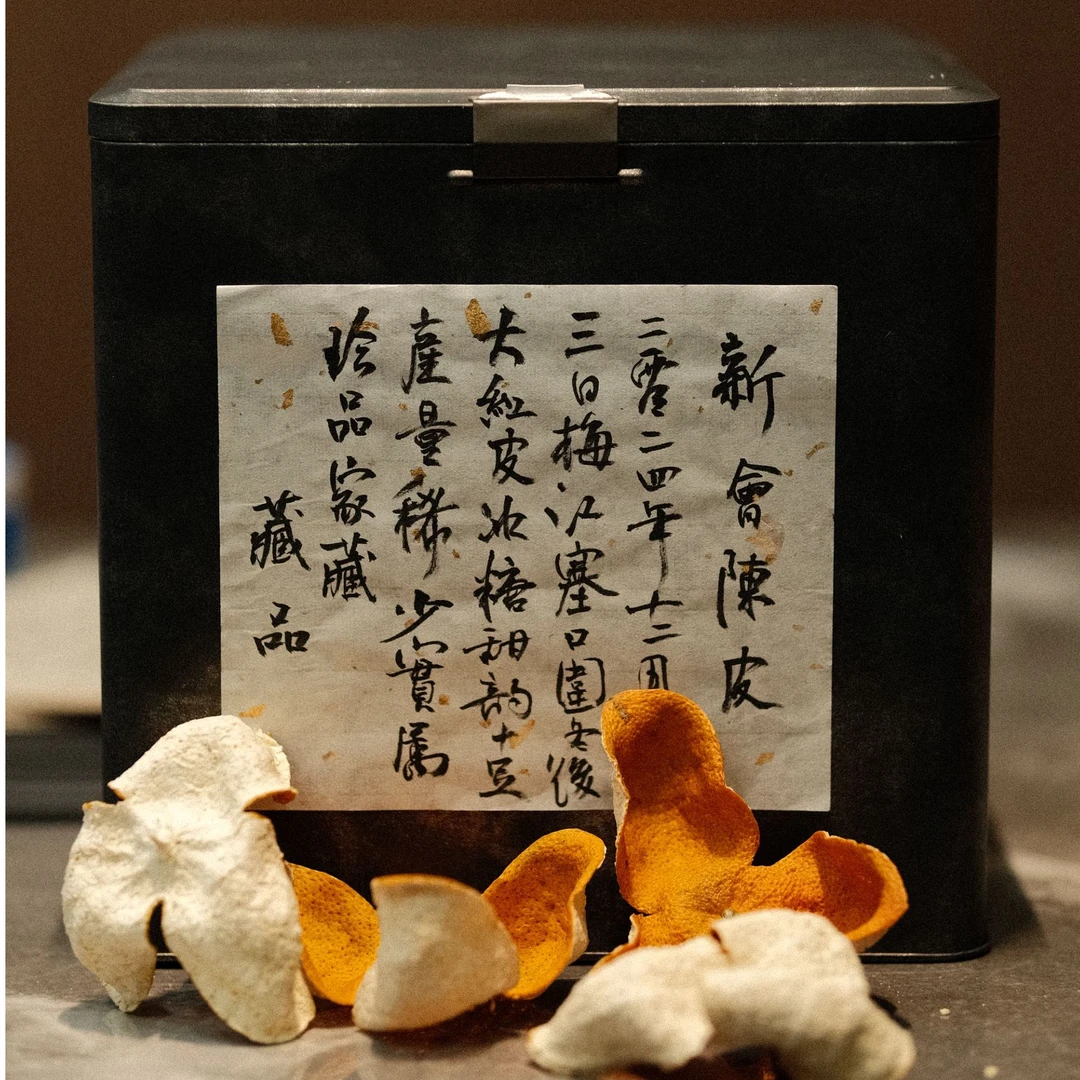 新會陳皮
二零二四年十二月
三日梅江塞口圍冬後
大紅皮冰糖甜韵十足
產量稀少實屬
珍品家藏
藏品